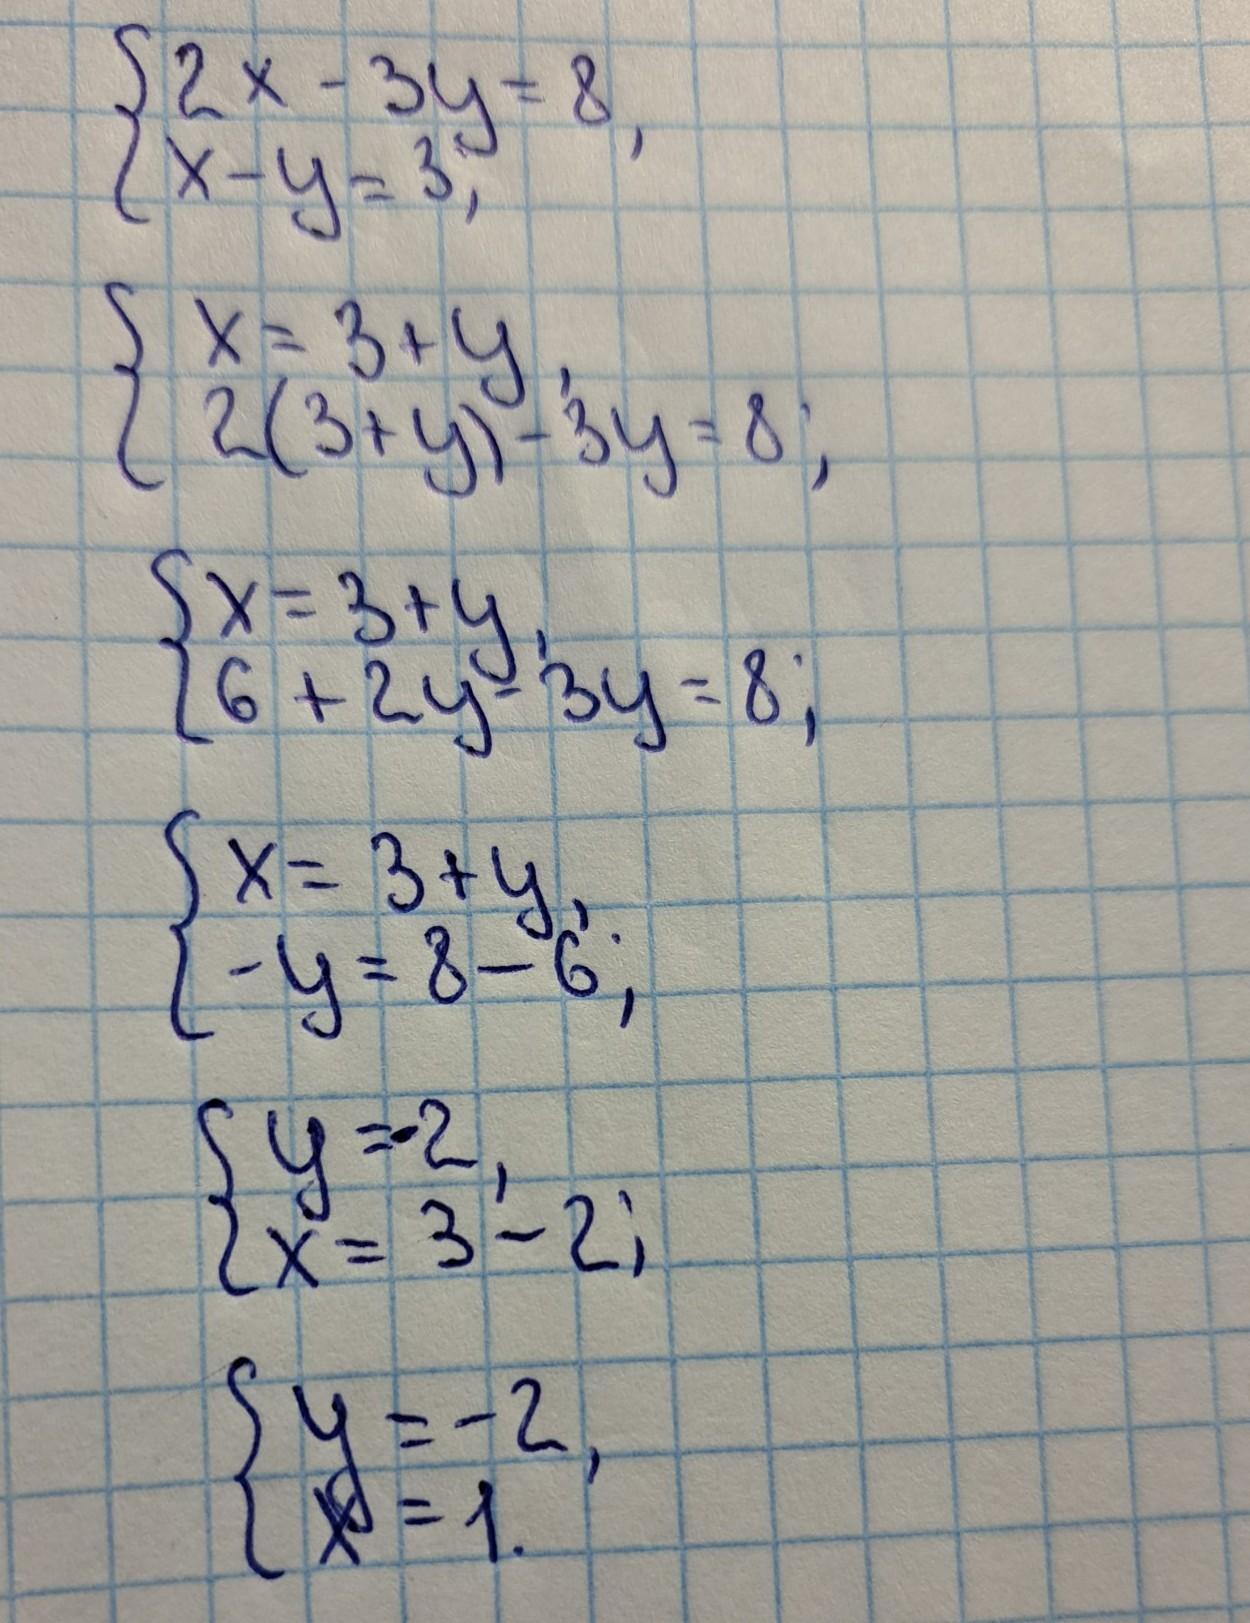 2x - 3y = 8,
x - y = 3;
x = 3 + y,
2(3 + y) - 3y = 8;
x = 3 + y,
6 + 2y - 3y = 8;
x = 3 + y,
-y = 8 - 6;
y = -2,
x = 3 - 2;
y = -2,
x = 1.